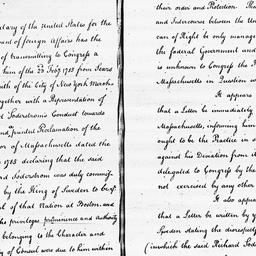 etary of the United States for the
ment of foreign Affairs has the
of transmitting to Congress a
him of the 23 Feby. 1785 from Isaac
ith of the City of New York Mercht.
together with a Representation of
d Soderstrom's Conduct towards
and printed Proclamation of the
or of Massachusetts dated the
1785 declaring that the said
Soderstrom was duly commis-
by the King of Sweden to be
of that Nation at Boston, and
the privileges, preeminence and authority
belonging to the Character and
of Consul were due to him within
their order and Protection. Th
and Intercourse between the Un
can of Right be only manag
the federal Government and
is unknown to Congress the
Massachusetts in Question w
It appears
that a Letter be immediately
Massachusetts, informing him
ought to be the Practice in
against his Deviation from it
delegated to Congress by the
not exercised by any other
It also appear
that a Letter be written by y
Sweden stating the disrespectf
(in which the said Richard Soder